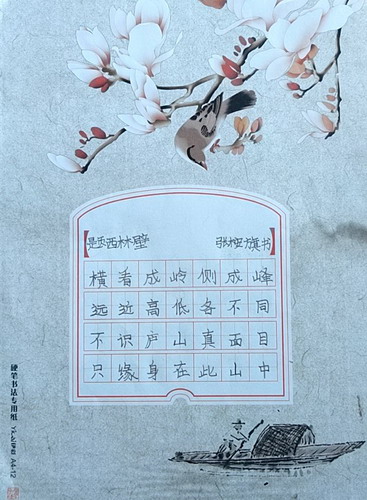 题西林壁
横看成岭侧成峰
远近高低各不同
不识庐山真面目
只缘身在此山中
硬笔书法专用纸 A4-12